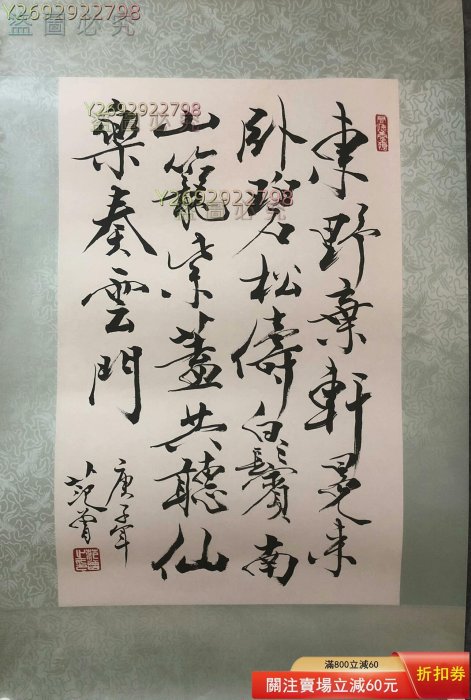 Y2692922798
盜圖必究
Y2692922798
盜圖必究
Y2692922798
盜圖必究
東野棄軒冕来
卧碧松儔白鬢南
山籠紫蓋共聽仙
樂奏雲門
庚子年
范曾
滿800立減60
關注賣場立減60元
折扣券